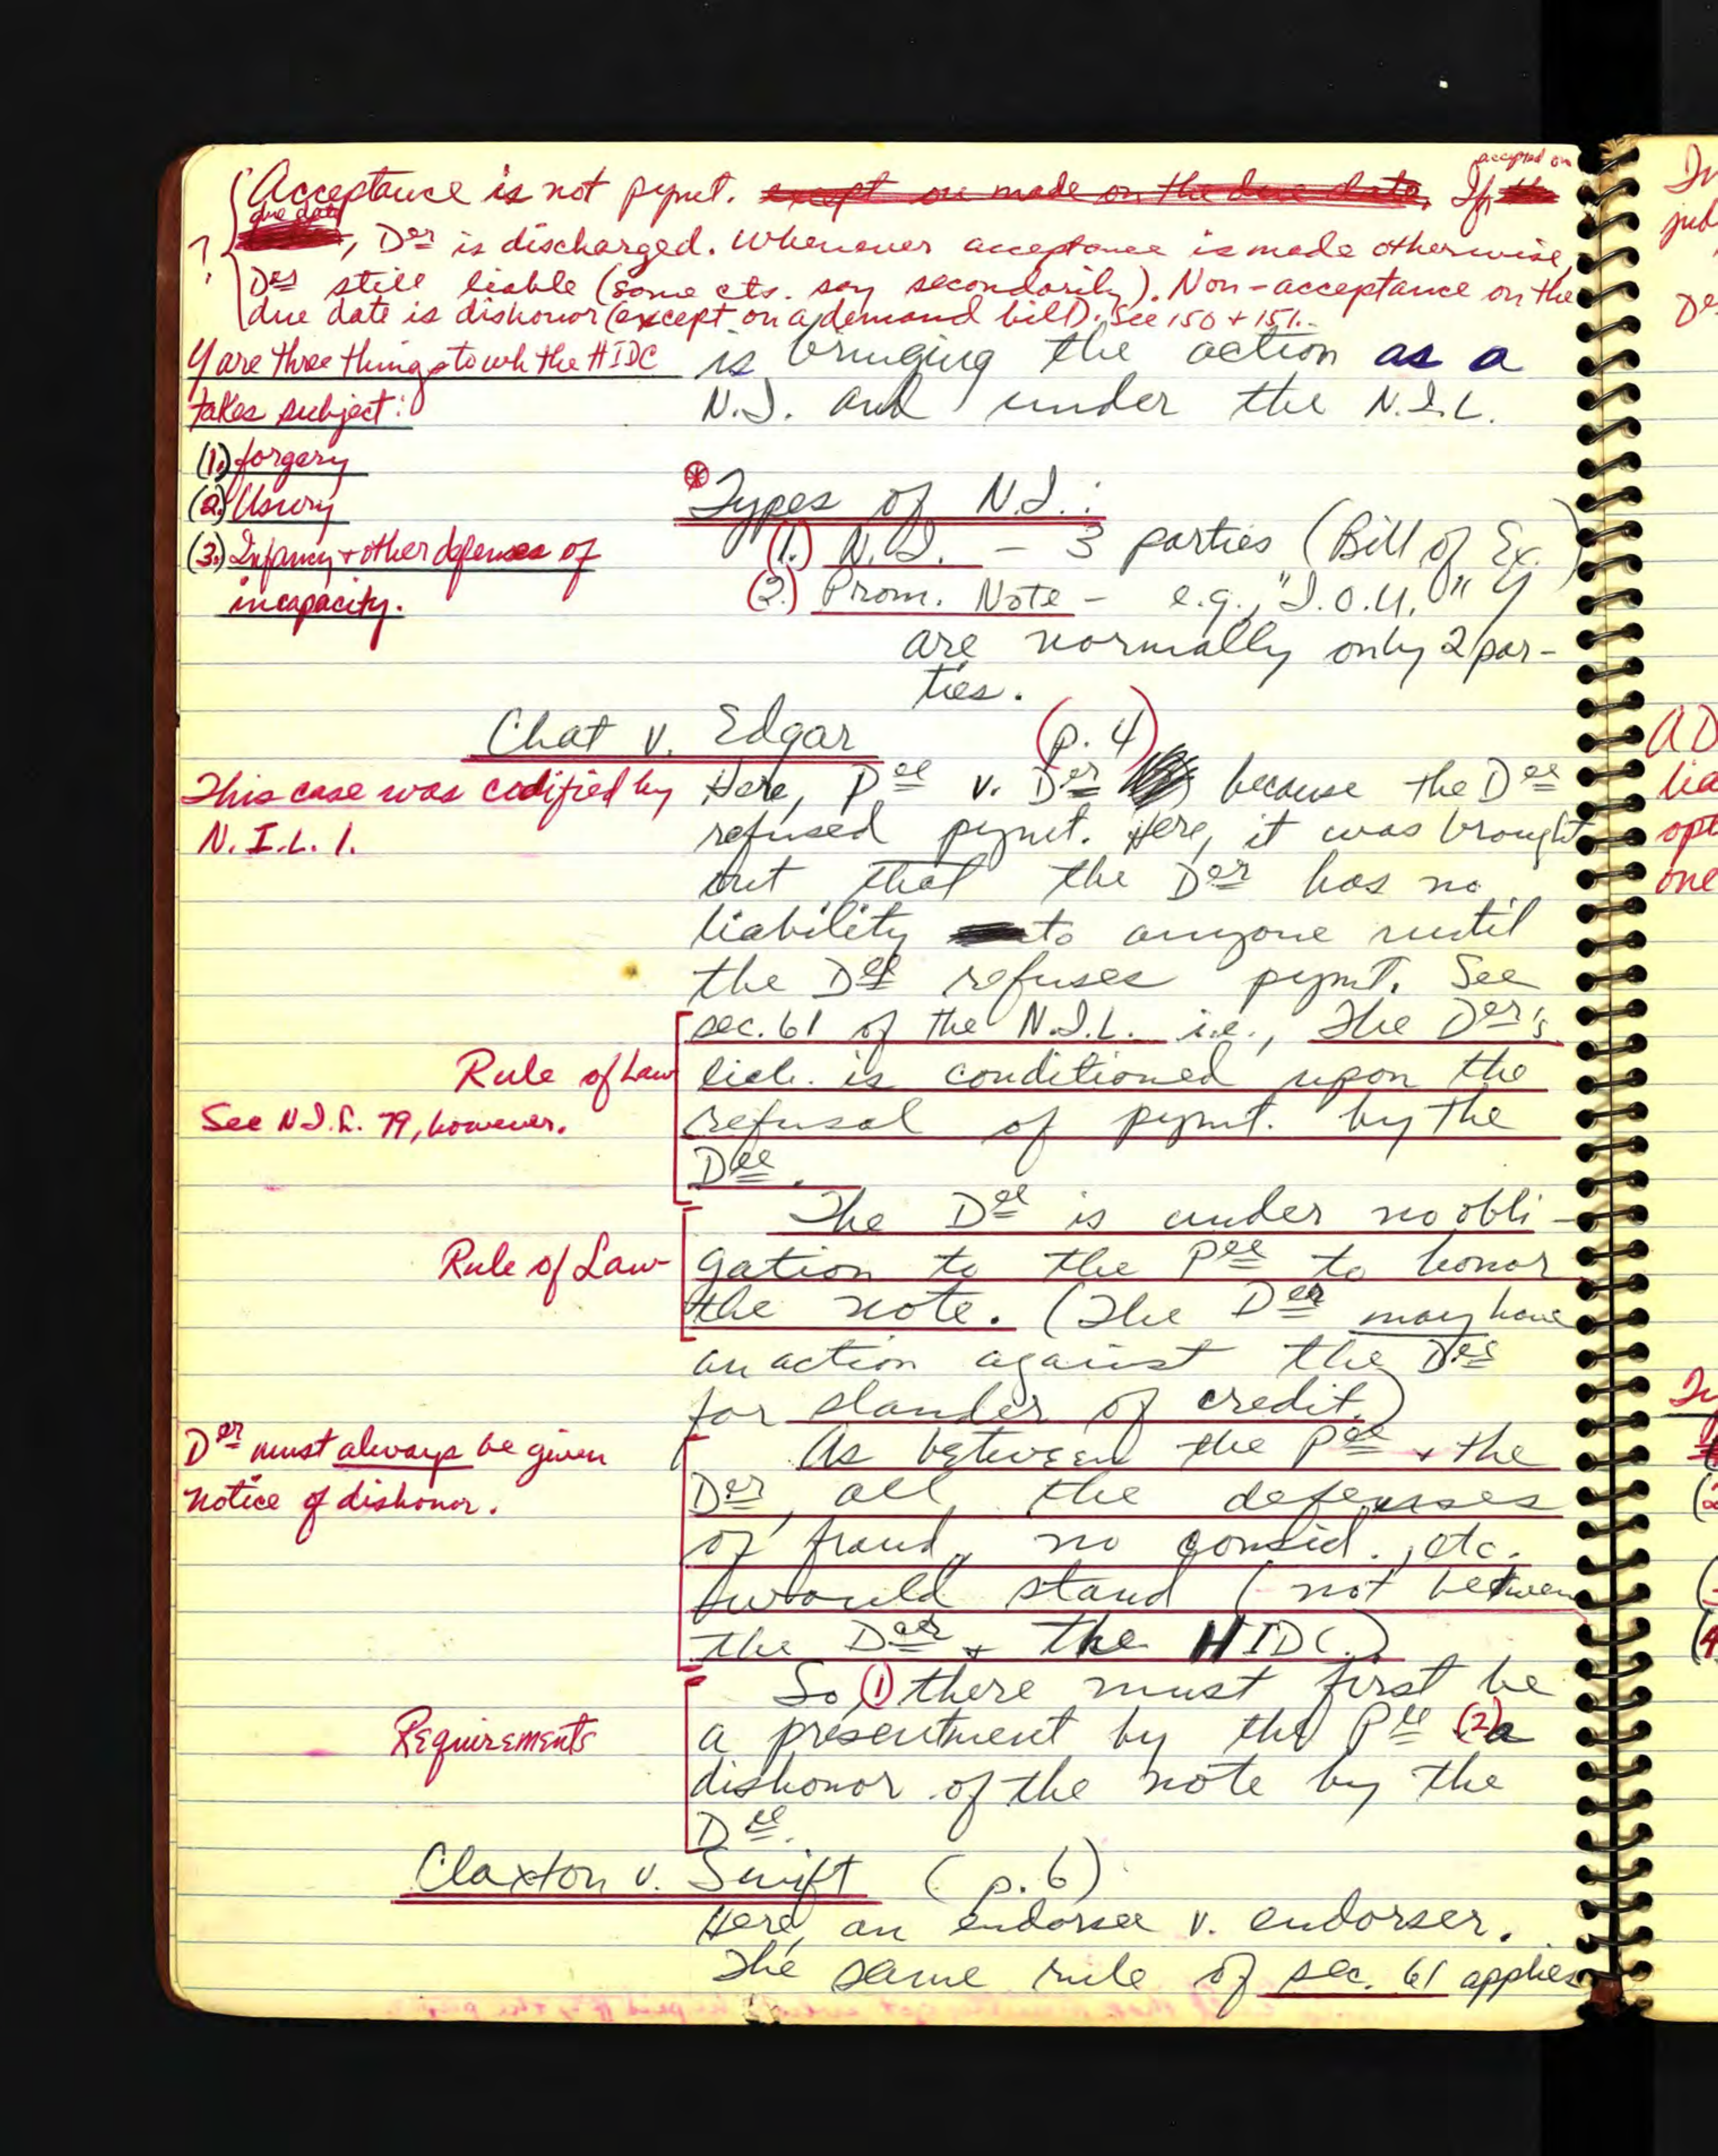 accepted on
Acceptance is not pymt. except on made on the due date. If the
due date
?
, Der is discharged. Whenever acceptance is made otherwise,
Der still liable (some cts. say secondarily). Non-acceptance on the
due date is dishonor (except on a demand bill). See 150 + 151.
Y are three things to wh the HIDC
takes subject:
(1.) forgery
(2.) Usury
(3.) Infancy + other defenses of
incapacity.
is bringing the action as a
N.I. and under the N.I.L.
Types of N.I.:
(1.) N.I. - 3 parties (Bill of Ex.)
(2.) Prom. Note - e.g., "I.O.U." Y
are normally only 2 par-
ties.
Chat v. Edgar (p. 4)
This case was codified by
N.I.L. 1.
Here, Pee v. Der because the Dee
refused pymt. Here, it was brought
out that the Der has no
liability to anyone until
the Dee refuses pymt. See
sec. 61 of the N.I.L. i.e., The Der's
liab. is conditioned upon the
refusal of pymt. by the
Dee.
Rule of Law
See N.I.L. 79, however.
The Dee is under no obli-
gation to the Pee to honor
the note. (The Der may have
an action against the Dee
for slander of credit.)
Rule of Law
Der must always be given
notice of dishonor.
As between the Pee + the
Der, all the defenses
of fraud, no consid., etc.
would stand (not between
the Der + the HIDC.)
So (1) there must first be
a presentment by the Pee (2) a
dishonor of the note by the
Dee.
Requirements
Claxton v. Swift (p. 6)
Here, an endorsee v. endorser.
The same rule of sec. 61 applies
In
De
AD
lia
opt
one
(2
(4